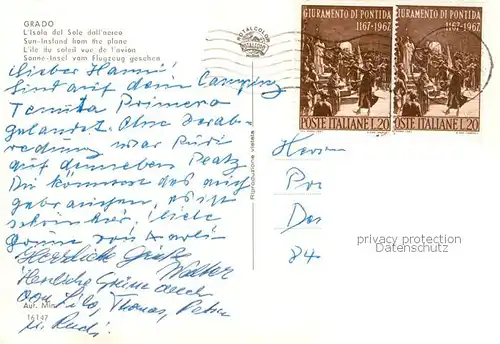 GRADO
L'Isola del Sole dall'aereo
Sun-Instand from the plane
L'île du soleil vue de l'avion
Sonne-Insel vom Flugzeug gesehen
TOTALCOLOR
GIURAMENTO DI PONTIDA
1167-1967
POSTE ITALIANE L.20
GIURAMENTO DI PONTIDA
1167-1967
POSTE ITALIANE L.20
Lieber Hanni!
Sind auf dem Camping
Tenuta Primero
gelandet. Ohne Verab-
redung war Rudi
auf demselben Platz
Du könntest das auch
gebrauchen, es ist
schön hier. Viele
Grüße von
Herzliche Grüße
Walter
Herzliche Grüße auch
von Lilo, Thomas, Petra
u. Rudi.
Aut. Min.
16147
Riproduzione vietata
Herrn
Pr
De
84
privacy protection
Datenschutz